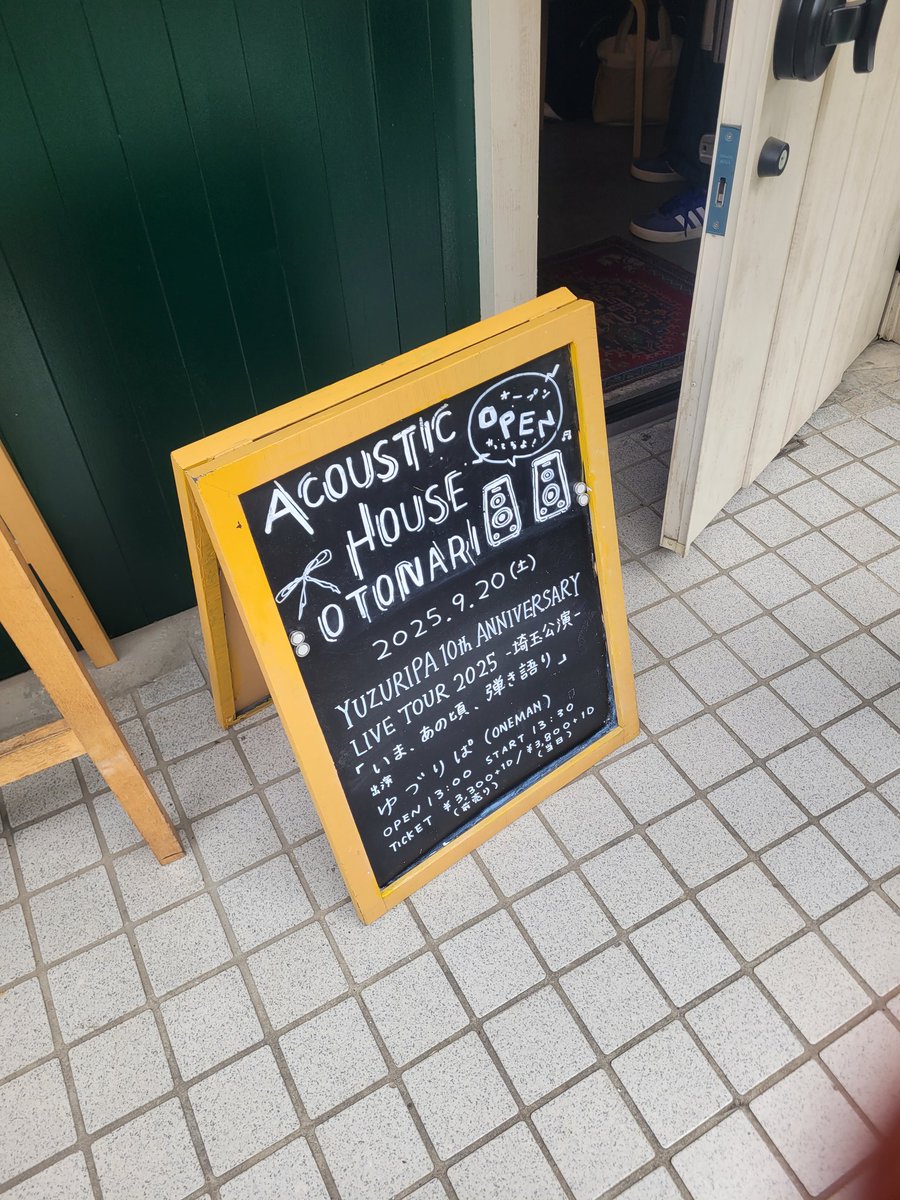 ACOUSTIC
HOUSE
OTONARI
オープン
OPEN
してるよ!
2025.9.20(土)
YUZURIPA 10th ANNIVERSARY
LIVE TOUR 2025 -埼玉公演-
「いま、あの頃、弾き語り」
出演
ゆづりぱ (ONEMAN)
OPEN 13:00 START 13:30
TICKET ¥3,300+1D/¥3,800+1D
(前売り) (当日)